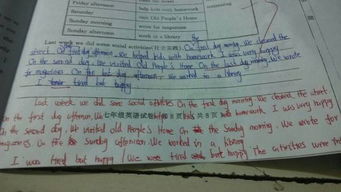 Friday afternoon
Saturday help kids with homework
Sunday morning visit Old People's Home
Sunday afternoon write for magazines
work in a library
Last week we did some social activities(社会实践). On the first day morning, We cleaned the
street. On first day afternoon, We helped kids with homework. I was very happy
On the second day. We visited old People's Home. On the last day morning. We wrote
for magazines. On the last day afternoon. We worked in a library.
I was tired but happy
Last week, we did some social activities. On the first day morning, We cleaned the street
On the first day afternoon, We kids homework. I was very happy
七年级英语试卷 第8页 共8页
On the second day. We visited old People's Home On the Sunday morning. We wrote for
magazines. On the Sunday afternoon. We worked in a library
I was tired but happy We were tired but happy The activities were